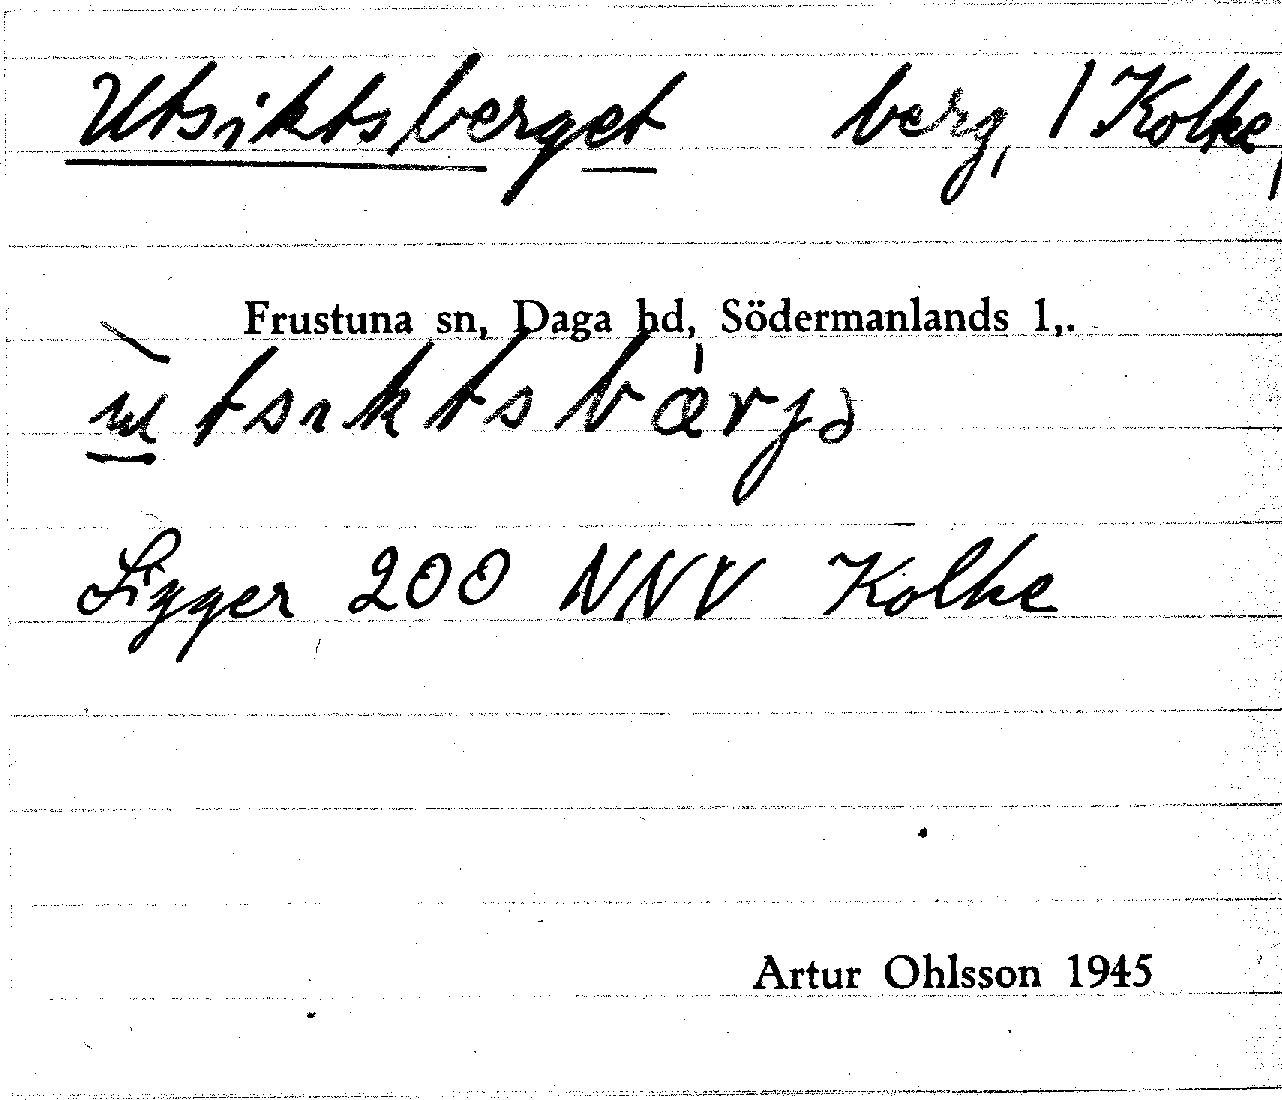 Utsiktsberget berg, / Kolke,
Frustuna sn, Daga hd, Södermanlands l,.
ùtsıktsbærjə
Ligger 200 NNV Kolke
Artur Ohlsson 1945